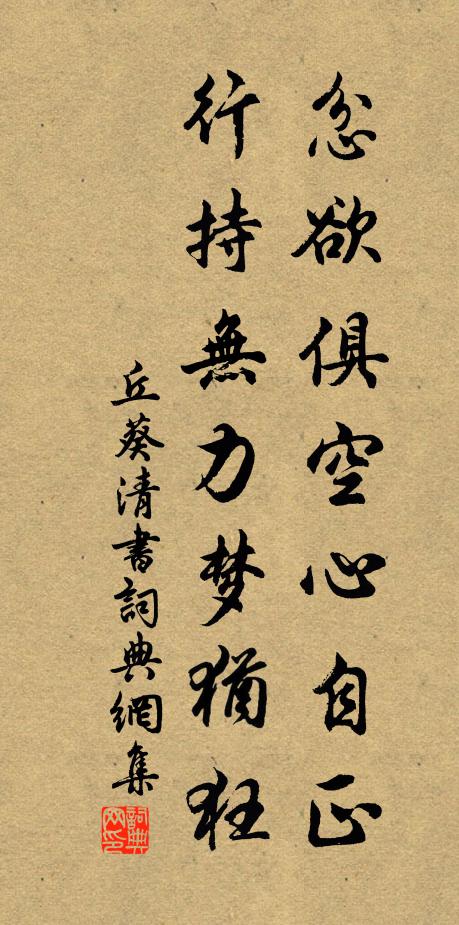 忿欲俱空心自正
行持無力梦猶狂
丘葵清書詞典網集
詞典网印